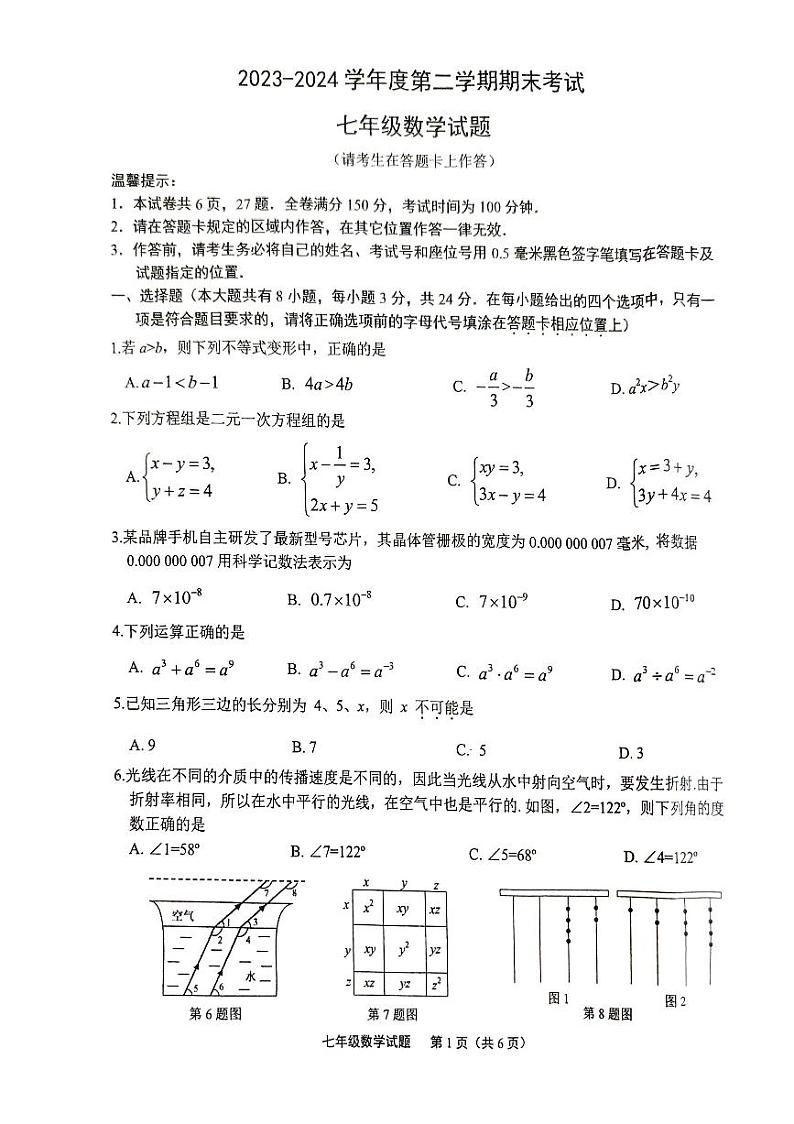 2023-2024 学年度第二学期期末考试
七年级数学试题
（请考生在答题卡上作答）
温馨提示：
1．本试卷共 6 页，27 题．全卷满分 150 分，考试时间为 100 分钟．
2．请在答题卡规定的区域内作答，在其它位置作答一律无效．
3．作答前，请考生务必将自己的姓名、考试号和座位号用 0.5 毫米黑色签字笔填写在答题卡及
试题指定的位置．
一、选择题（本大题共有 8 小题，每小题 3 分，共 24 分．在每小题给出的四个选项中，只有一
项是符合题目要求的，请将正确选项前的字母代号填涂在答题卡相应位置上）
1.若 a>b，则下列不等式变形中，正确的是
A. a−1<b−1 B. 4a>4b C. −a/3>−b/3 D. a²x>b²y
2.下列方程组是二元一次方程组的是
A. {x−y=3, y+z=4 B. {x−1/y=3, 2x+y=5 C. {xy=3, 3x−y=4 D. {x=3+y, 3y+4x=4
3.某品牌手机自主研发了最新型号芯片，其晶体管栅极的宽度为 0.000 000 007 毫米, 将数据
0.000 000 007 用科学记数法表示为
A. 7×10⁻⁸ B. 0.7×10⁻⁸ C. 7×10⁻⁹ D. 70×10⁻¹⁰
4.下列运算正确的是
A. a³+a⁶=a⁹ B. a³−a⁶=a⁻³ C. a³·a⁶=a⁹ D. a³÷a⁶=a⁻²
5.已知三角形三边的长分别为 4、5、x，则 x 不可能是
A. 9 B. 7 C. 5 D. 3
6.光线在不同的介质中的传播速度是不同的，因此当光线从水中射向空气时，要发生折射.由于
折射率相同，所以在水中平行的光线，在空气中也是平行的. 如图，∠2=122º，则下列角的度
数正确的是
A. ∠1=58º B. ∠7=122º C. ∠5=68º D. ∠4=122º
7 8
空气 1 3
2 4
水
5 6
第 6 题图
x y z
x x² xy xz
y xy y² yz
z xz yz z²
第 7 题图
图 1 图 2
第 8 题图
七年级数学试题 第 1 页（共 6 页）